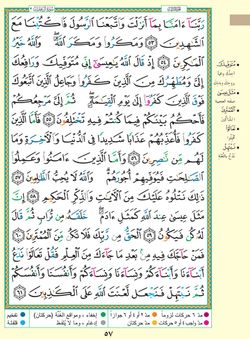 رَبَّنَآ ءَامَنَّا بِمَآ أَنزَلْتَ وَٱتَّبَعْنَا ٱلرَّسُولَ فَٱكْتُبْنَا مَعَ
ٱلشَّٰهِدِينَ ٥٣ وَمَكَرُوا۟ وَمَكَرَ ٱللَّهُ وَٱللَّهُ خَيْرُ
ٱلْمَٰكِرِينَ ٥٤ إِذْ قَالَ ٱللَّهُ يَٰعِيسَىٰٓ إِنِّى مُتَوَفِّيكَ وَرَافِعُكَ
إِلَىَّ وَمُطَهِّرُكَ مِنَ ٱلَّذِينَ كَفَرُوا۟ وَجَاعِلُ ٱلَّذِينَ ٱتَّبَعُوكَ
فَوْقَ ٱلَّذِينَ كَفَرُوٓا۟ إِلَىٰ يَوْمِ ٱلْقِيَٰمَةِ ثُمَّ إِلَىَّ مَرْجِعُكُمْ
فَأَحْكُمُ بَيْنَكُمْ فِيمَا كُنتُمْ فِيهِ تَخْتَلِفُونَ ٥٥ فَأَمَّا ٱلَّذِينَ
كَفَرُوا۟ فَأُعَذِّبُهُمْ عَذَابًا شَدِيدًا فِى ٱلدُّنْيَا وَٱلْءَاخِرَةِ وَمَا
لَهُم مِّن نَّٰصِرِينَ ٥٦ وَأَمَّا ٱلَّذِينَ ءَامَنُوا۟ وَعَمِلُوا۟
ٱلصَّٰلِحَٰتِ فَيُوَفِّيهِمْ أُجُورَهُمْ وَٱللَّهُ لَا يُحِبُّ ٱلظَّٰلِمِينَ ٥٧
ذَٰلِكَ نَتْلُوهُ عَلَيْكَ مِنَ ٱلْءَايَٰتِ وَٱلذِّكْرِ ٱلْحَكِيمِ ٥٨ إِنَّ
مَثَلَ عِيسَىٰ عِندَ ٱللَّهِ كَمَثَلِ ءَادَمَ خَلَقَهُۥ مِن تُرَابٍ ثُمَّ قَالَ
لَهُۥ كُن فَيَكُونُ ٥٩ ٱلْحَقُّ مِن رَّبِّكَ فَلَا تَكُن مِّنَ ٱلْمُمْتَرِينَ ٦٠
فَمَنْ حَآجَّكَ فِيهِ مِنۢ بَعْدِ مَا جَآءَكَ مِنَ ٱلْعِلْمِ فَقُلْ تَعَالَوْا۟
نَدْعُ أَبْنَآءَنَا وَأَبْنَآءَكُمْ وَنِسَآءَنَا وَنِسَآءَكُمْ وَأَنفُسَنَا وَأَنفُسَكُمْ
ثُمَّ نَبْتَهِلْ فَنَجْعَل لَّعْنَتَ ٱللَّهِ عَلَى ٱلْكَٰذِبِينَ ٦١
٥٧